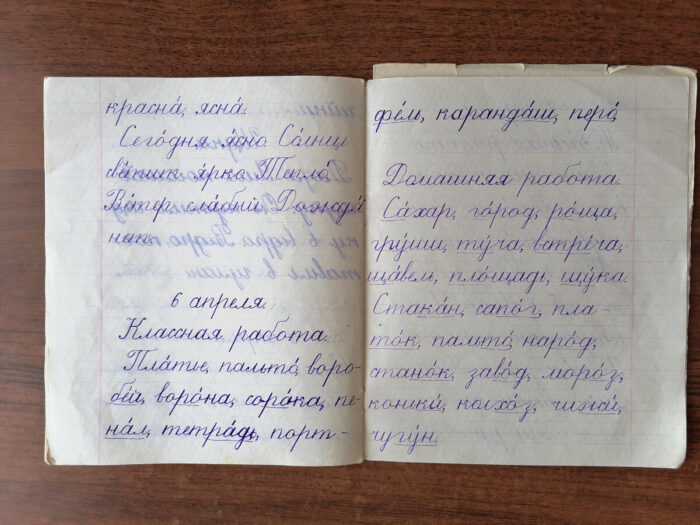 красна́, ясна́.
Сего́дня я́сно Со́лнце
све́тит я́рко. Тепло́.
Ве́тер сла́бый. Дождя́
нет.
6 апреля.
Классная работа.
Пла́тье, пальто́, воро-
бе́й, воро́на, соро́ка, пе-
на́л, тетра́дь, порт-
фе́ль, каранда́ш, перо́
Домашняя работа.
Са́хар, го́род, ро́ща,
гру́ши, ту́ча, встре́ча,
щаве́ль, пло́щадь, щу́ка.
Стака́н, сапо́г, пла-
то́к, пальто́, наро́д,
стано́к, заво́д, моро́з,
коньки́, колхо́з, чижи́,
чугу́н.